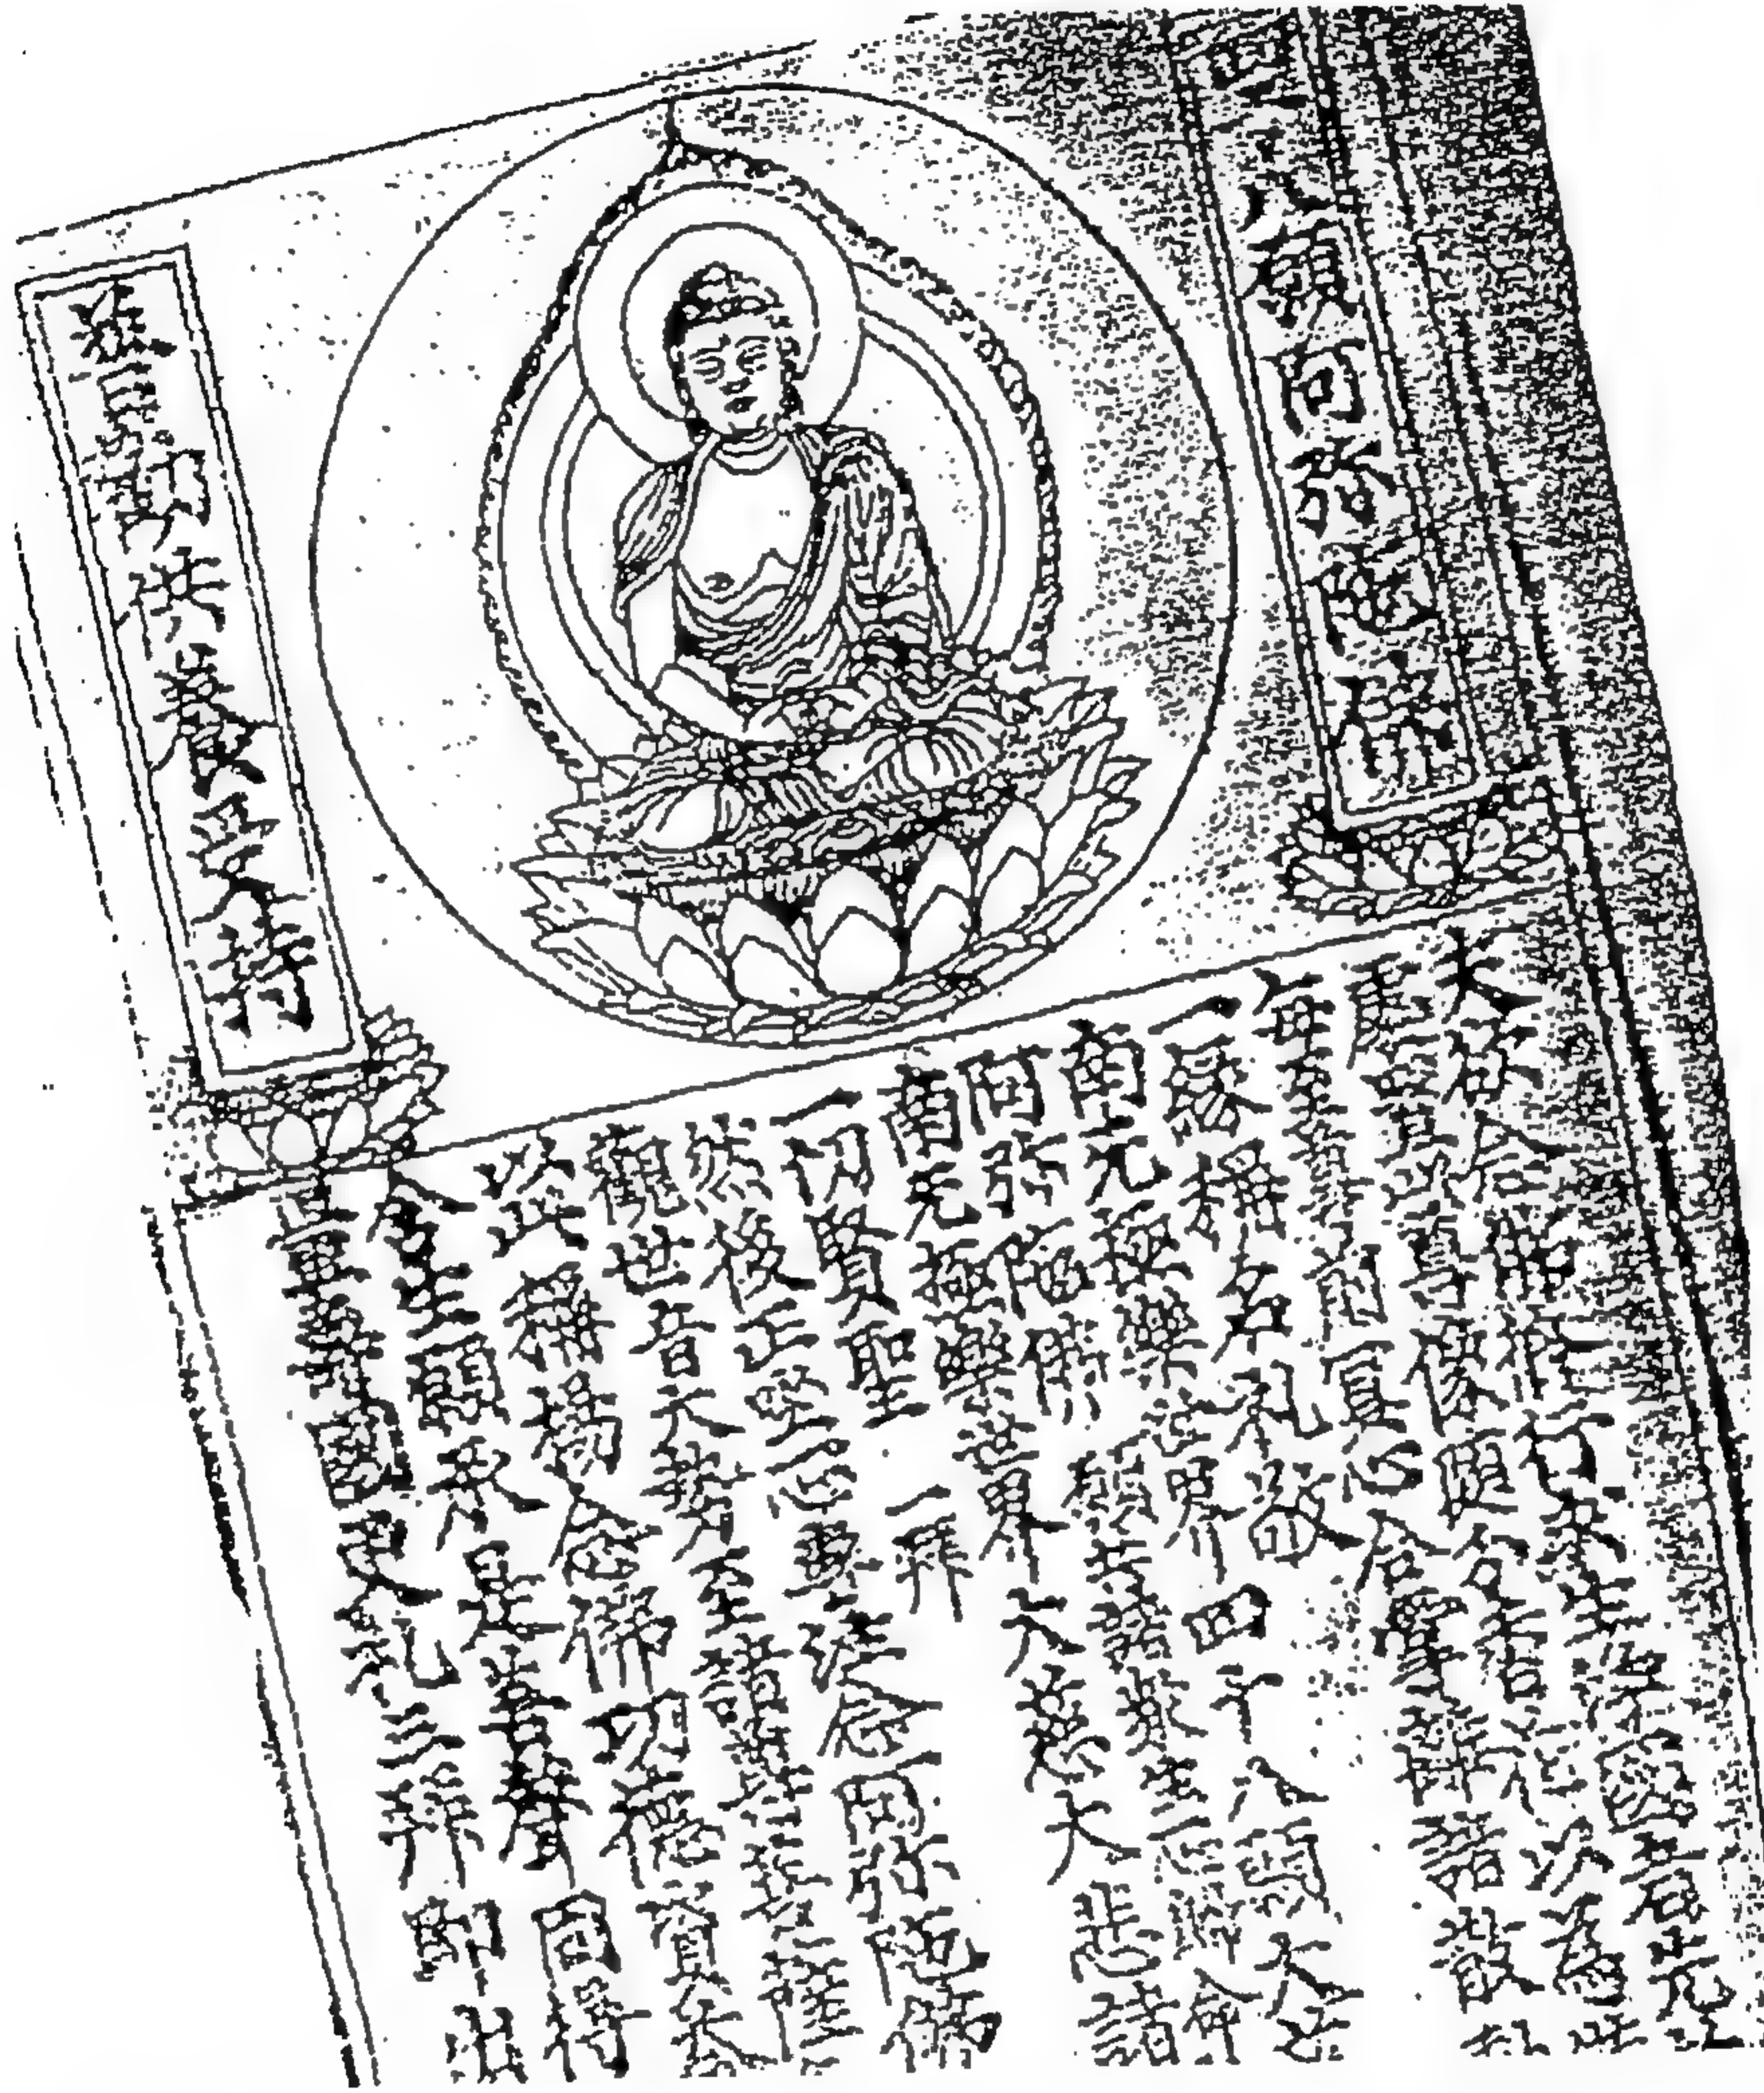 四十八願阿弥陁佛
普勸供養受持
夫欲念佛修行求生淨國者先
處置此尊像隨分香花以為
每至尊前冥心合掌離諸散
一緣稱名礼敬
南无極樂世界四十八願大
阿弥陁佛 願共諸眾生一心歸命
南无極樂世界大慈大悲諸
一切賢聖 一拜
然後正坐一心專注念阿弥陁佛
觀世音大勢至諸尊菩薩
以此稱揚念佛功德資益
含生願承是善聲同得
量壽國更礼三拜即出